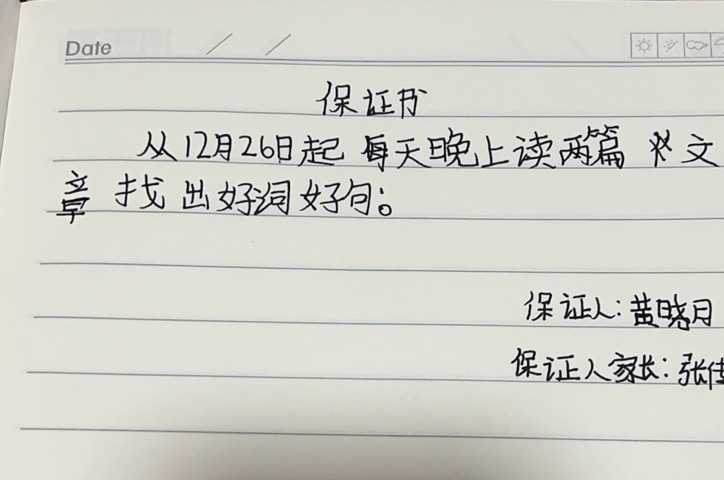 Date
保证书
从12月26日起 每天晚上读两篇 文
章 找出好词好句。
保证人：黄晓月
保证人家长：张佳